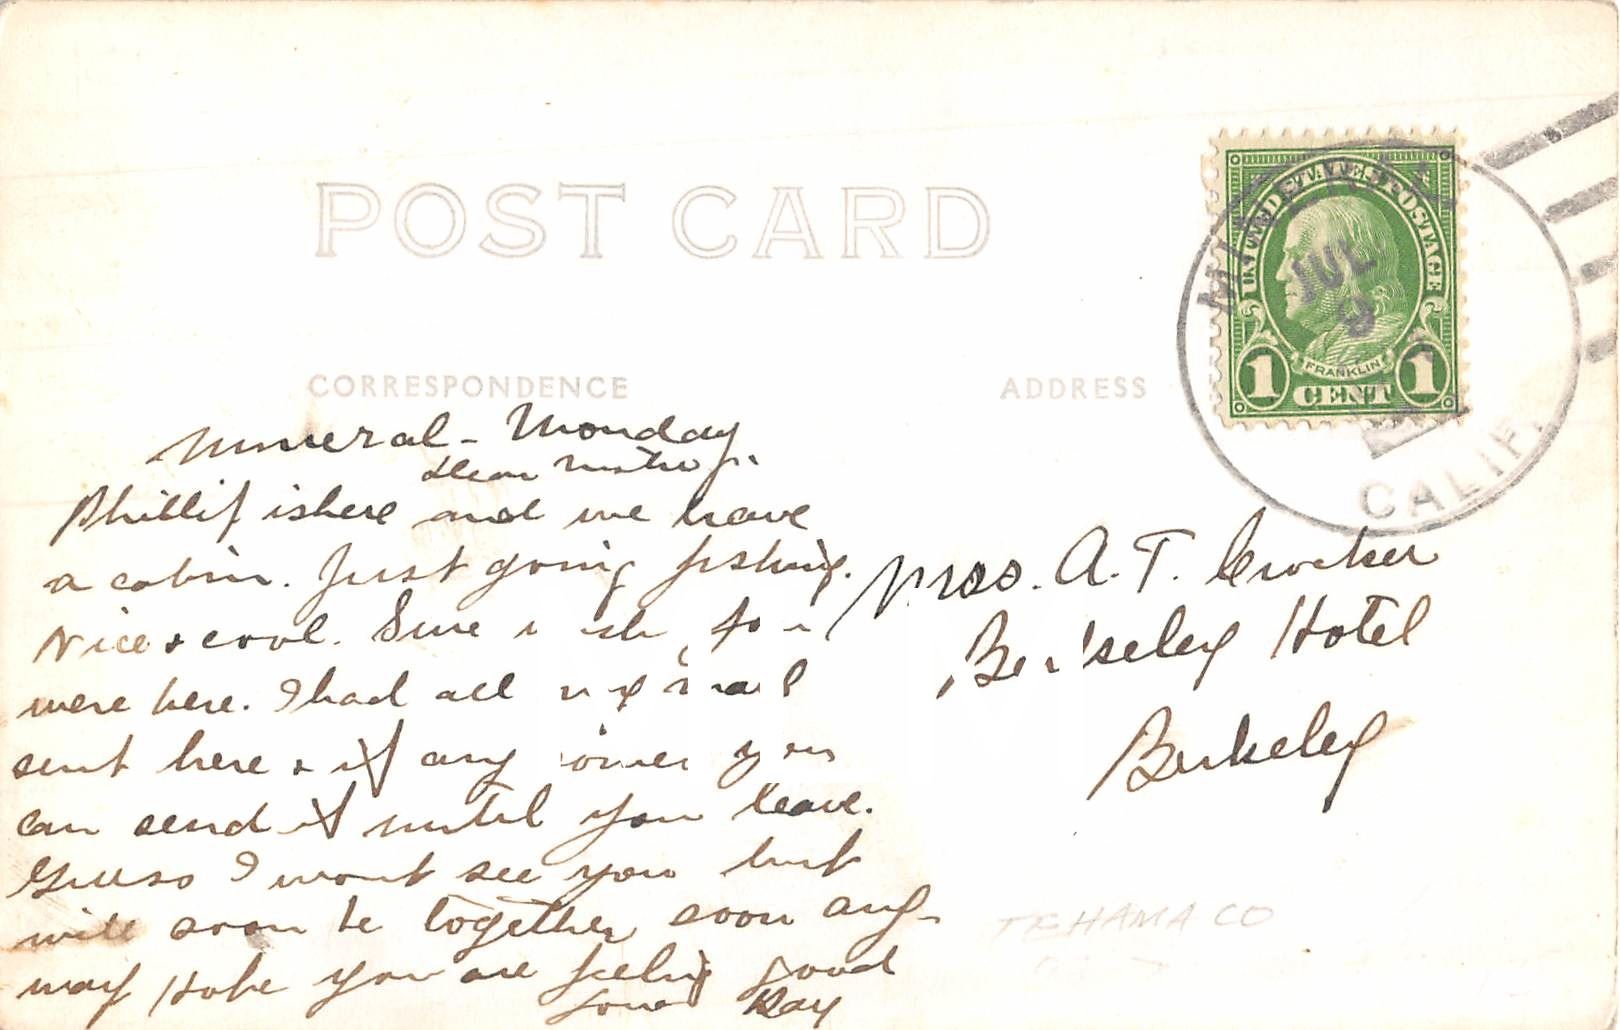 POST CARD
UNITED STATES POSTAGE
FRANKLIN
1 CENT 1
MINERAL
JUL
9
CALIF.
CORRESPONDENCE
ADDRESS
Mineral - Monday
Dear Mother.
Phillip is here and we have
a cabin. Just going fishing.
Nice & cool. Sure wish you
were here. I had all my mail
sent here & if any comes you
can send it until you leave.
Guess I wont see you but
will soon be together soon any-
way Hope you are feeling good
Love Ray
Mrs. A. T. Crocker
Berkeley Hotel
Berkeley
TEHAMA CO